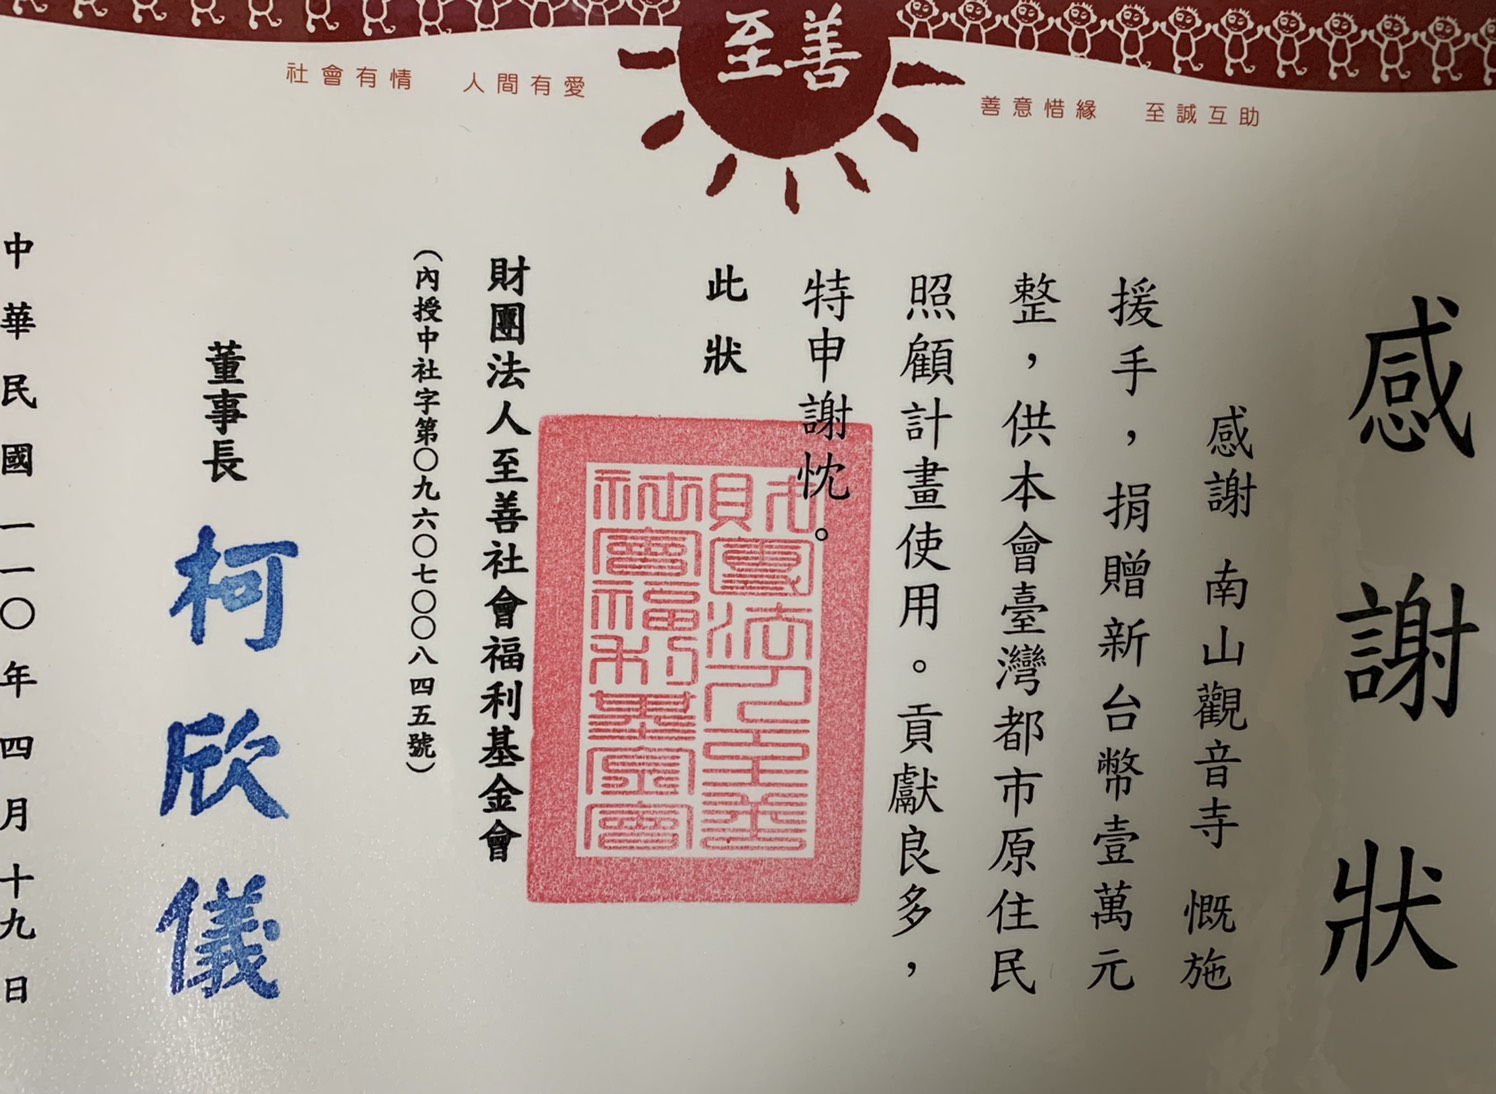 至善
社會有情 人間有愛
善意惜緣 至誠互助
感謝狀
感謝 南山觀音寺 慨施
援手,捐贈新台幣壹萬元
整,供本會臺灣都市原住民
照顧計畫使用。貢獻良多,
特申謝忱。
此狀
財團法人至善社會福利基金會
(內授中社字第〇九六〇七〇〇八四五號)
財團法人至善
社會福利基金會
董事長 柯欣儀
中華民國一一〇年四月十九日